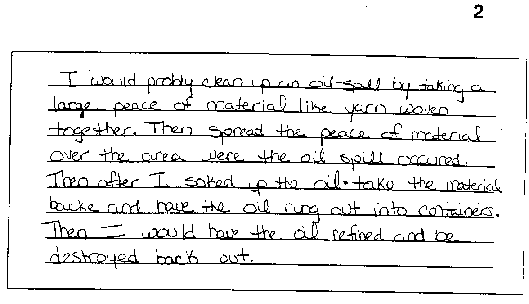 2
I would probly clean up an oil spill by taking a
large peace of material like yarn woven
together. Then spread the peace of material
over the area were the oil spill occured.
Then after I soked up the oil take the material
backe and have the oil rung out into containers.
Then I would have the oil refined and be
destroyed back out.